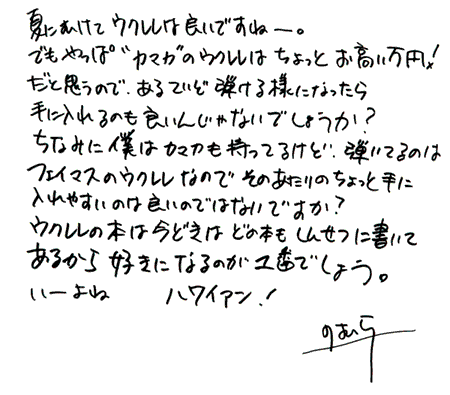 夏にむけてウクレレは良いですねー。
でもやっぱ"カマカ"のウクレレはちょっとお高い万円!
だと思うので、あるていど弾ける様になったら
手に入れるのも良いんじゃないでしょうか?
ちなみに僕はカマカも持ってるけど、弾いてるのは
フェイマスのウクレレなのでそのあたりのちょっと手に
入れやすいのは良いのではないですか?
ウクレレの本は今どきはどの本もしんせつに書いて
あるから好きになるのが1番でしょう。
いーよね ハワイアン!
のむら